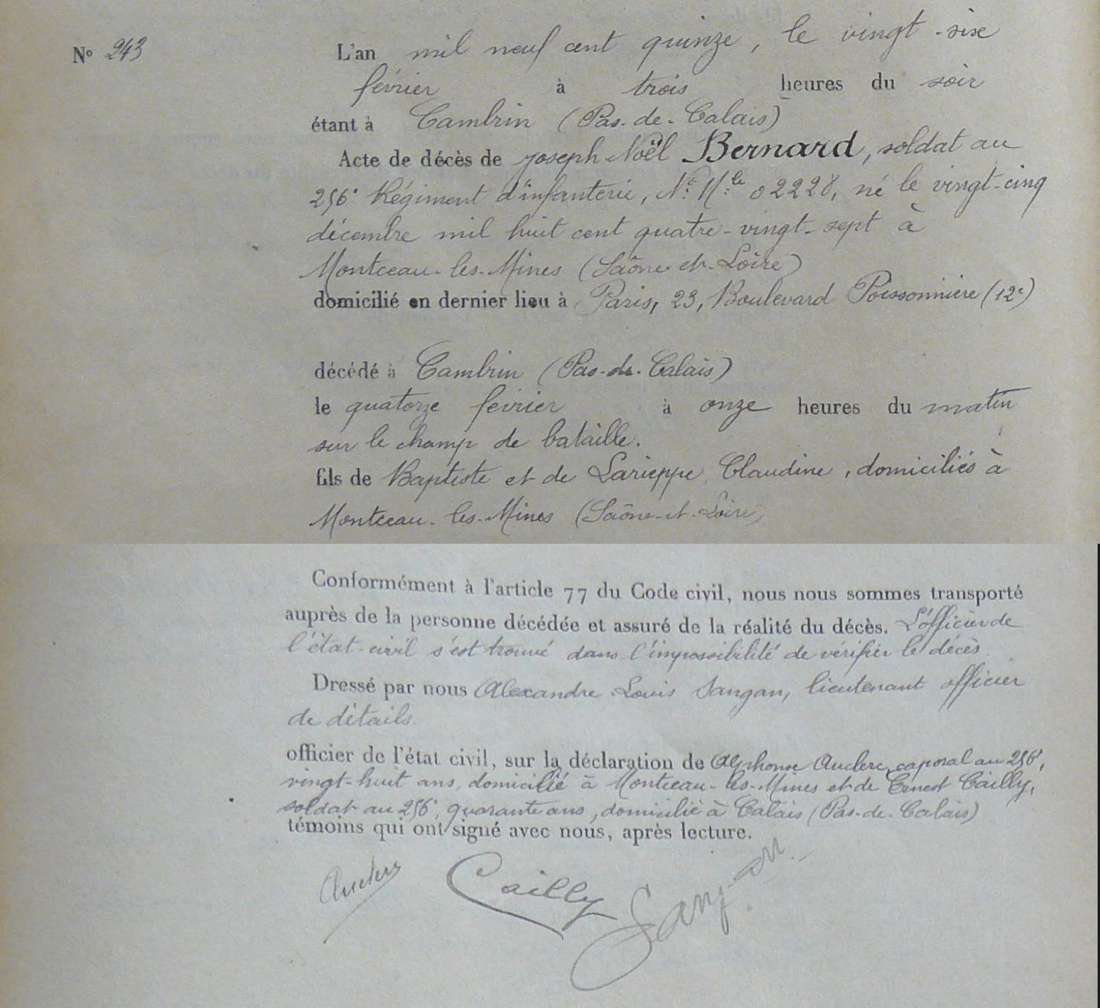 N° 243
L'an mil neuf cent quinze, le vingt-six
février à trois heures du soir
étant à Cambrin (Pas-de-Calais)
Acte de décès de Joseph Noël Bernard, soldat au
256e Régiment d'infanterie, N° Mle 02228, né le vingt-cinq
décembre mil huit cent quatre-vingt-sept à
Montceau-les-Mines (Saône-et-Loire)
domicilié en dernier lieu à Paris, 23, Boulevard Poissonnière (12e)
décédé à Cambrin (Pas-de-Calais)
le quatorze février à onze heures du matin
sur le champ de bataille.
fils de Baptiste et de Larieppe Claudine, domiciliés à
Montceau-les-Mines (Saône-et-Loire)
Conformément à l'article 77 du Code civil, nous nous sommes transporté
auprès de la personne décédée et assuré de la réalité du décès. L'officier de
l'état-civil s'est trouvé dans l'impossibilité de vérifier le décès.
Dressé par nous Alexandre Louis Sangan, lieutenant officier
de détails
officier de l'état civil, sur la déclaration de Alphonse Auclerc, caporal au 256e,
vingt-huit ans, domicilié à Montceau-les-Mines et de Ernest Cailly,
soldat au 256e, quarante ans, domicilié à Calais (Pas-de-Calais)
témoins qui ont signé avec nous, après lecture.
Auclerc Cailly Sangan